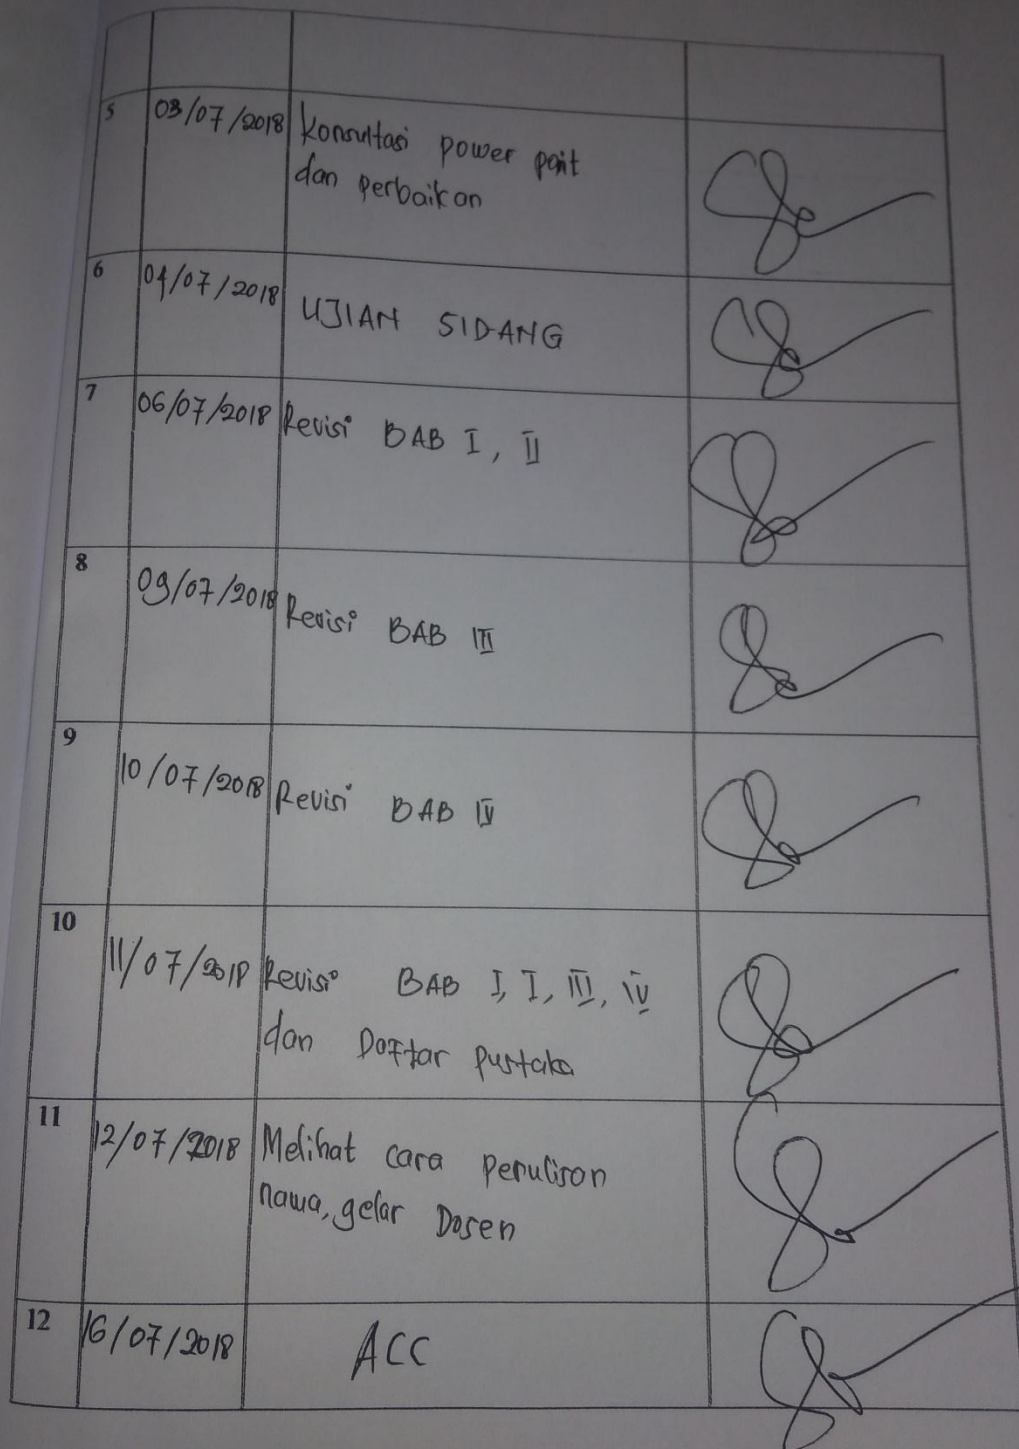 5 03/07/2018 Konsultasi power poit
dan perbaikan
6 04/07/2018 UJIAN SIDANG
7 06/07/2018 Revisi BAB I, II
8 09/07/2018 Revisi BAB III
9 10/07/2018 Revisi BAB IV
10 11/07/2018 Revisi BAB I, I, III, IV
dan Daftar Pustaka
11 12/07/2018 Melihat cara penulisan
nama, gelar Dosen
12 16/07/2018 ACC